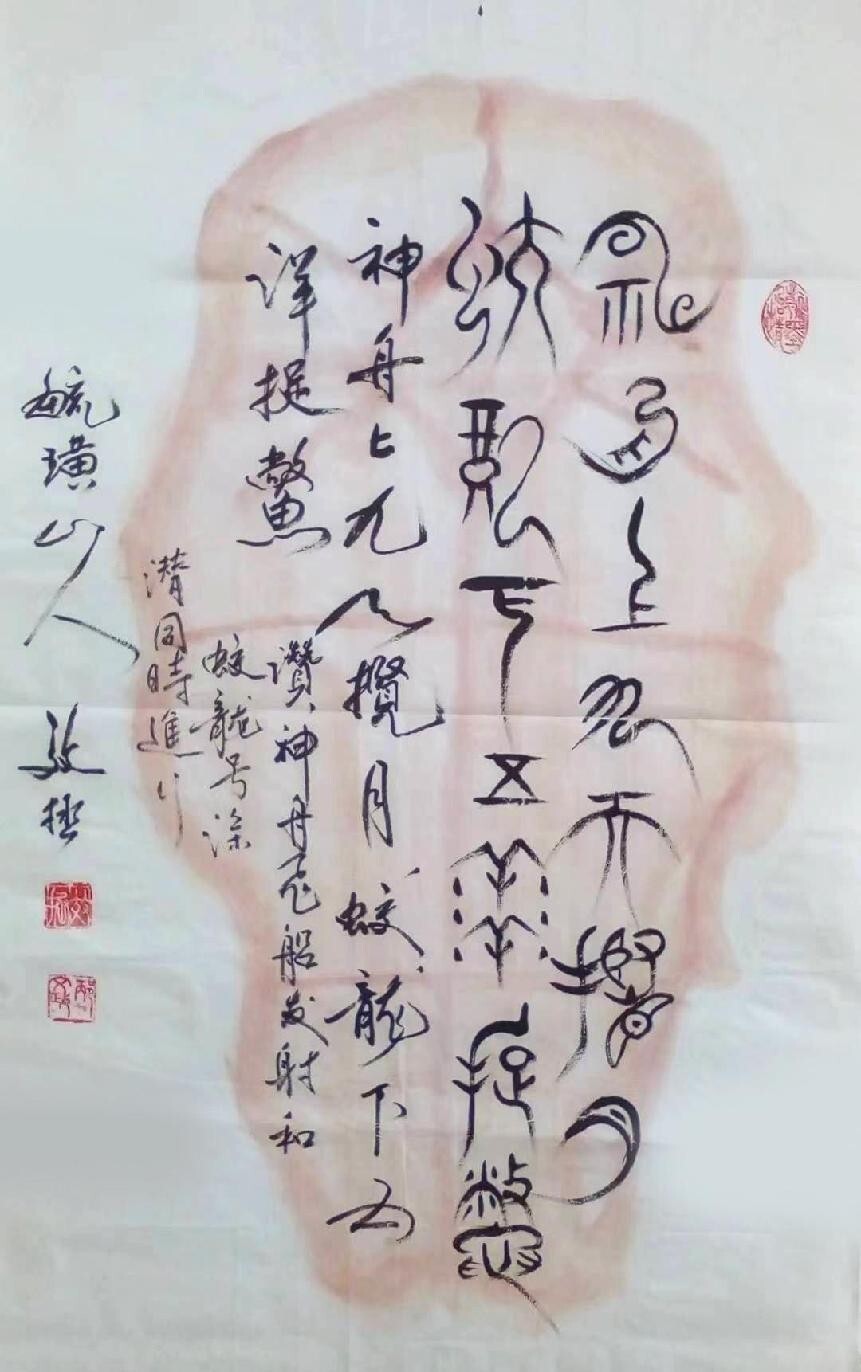 神舟上九天攬月
蛟龍下五洋捉鼈
神舟上九天攬月蛟龍下五
洋捉鱉
讚神舟飞船发射和
蛟龍号深
潜同時進行
毓璜山人